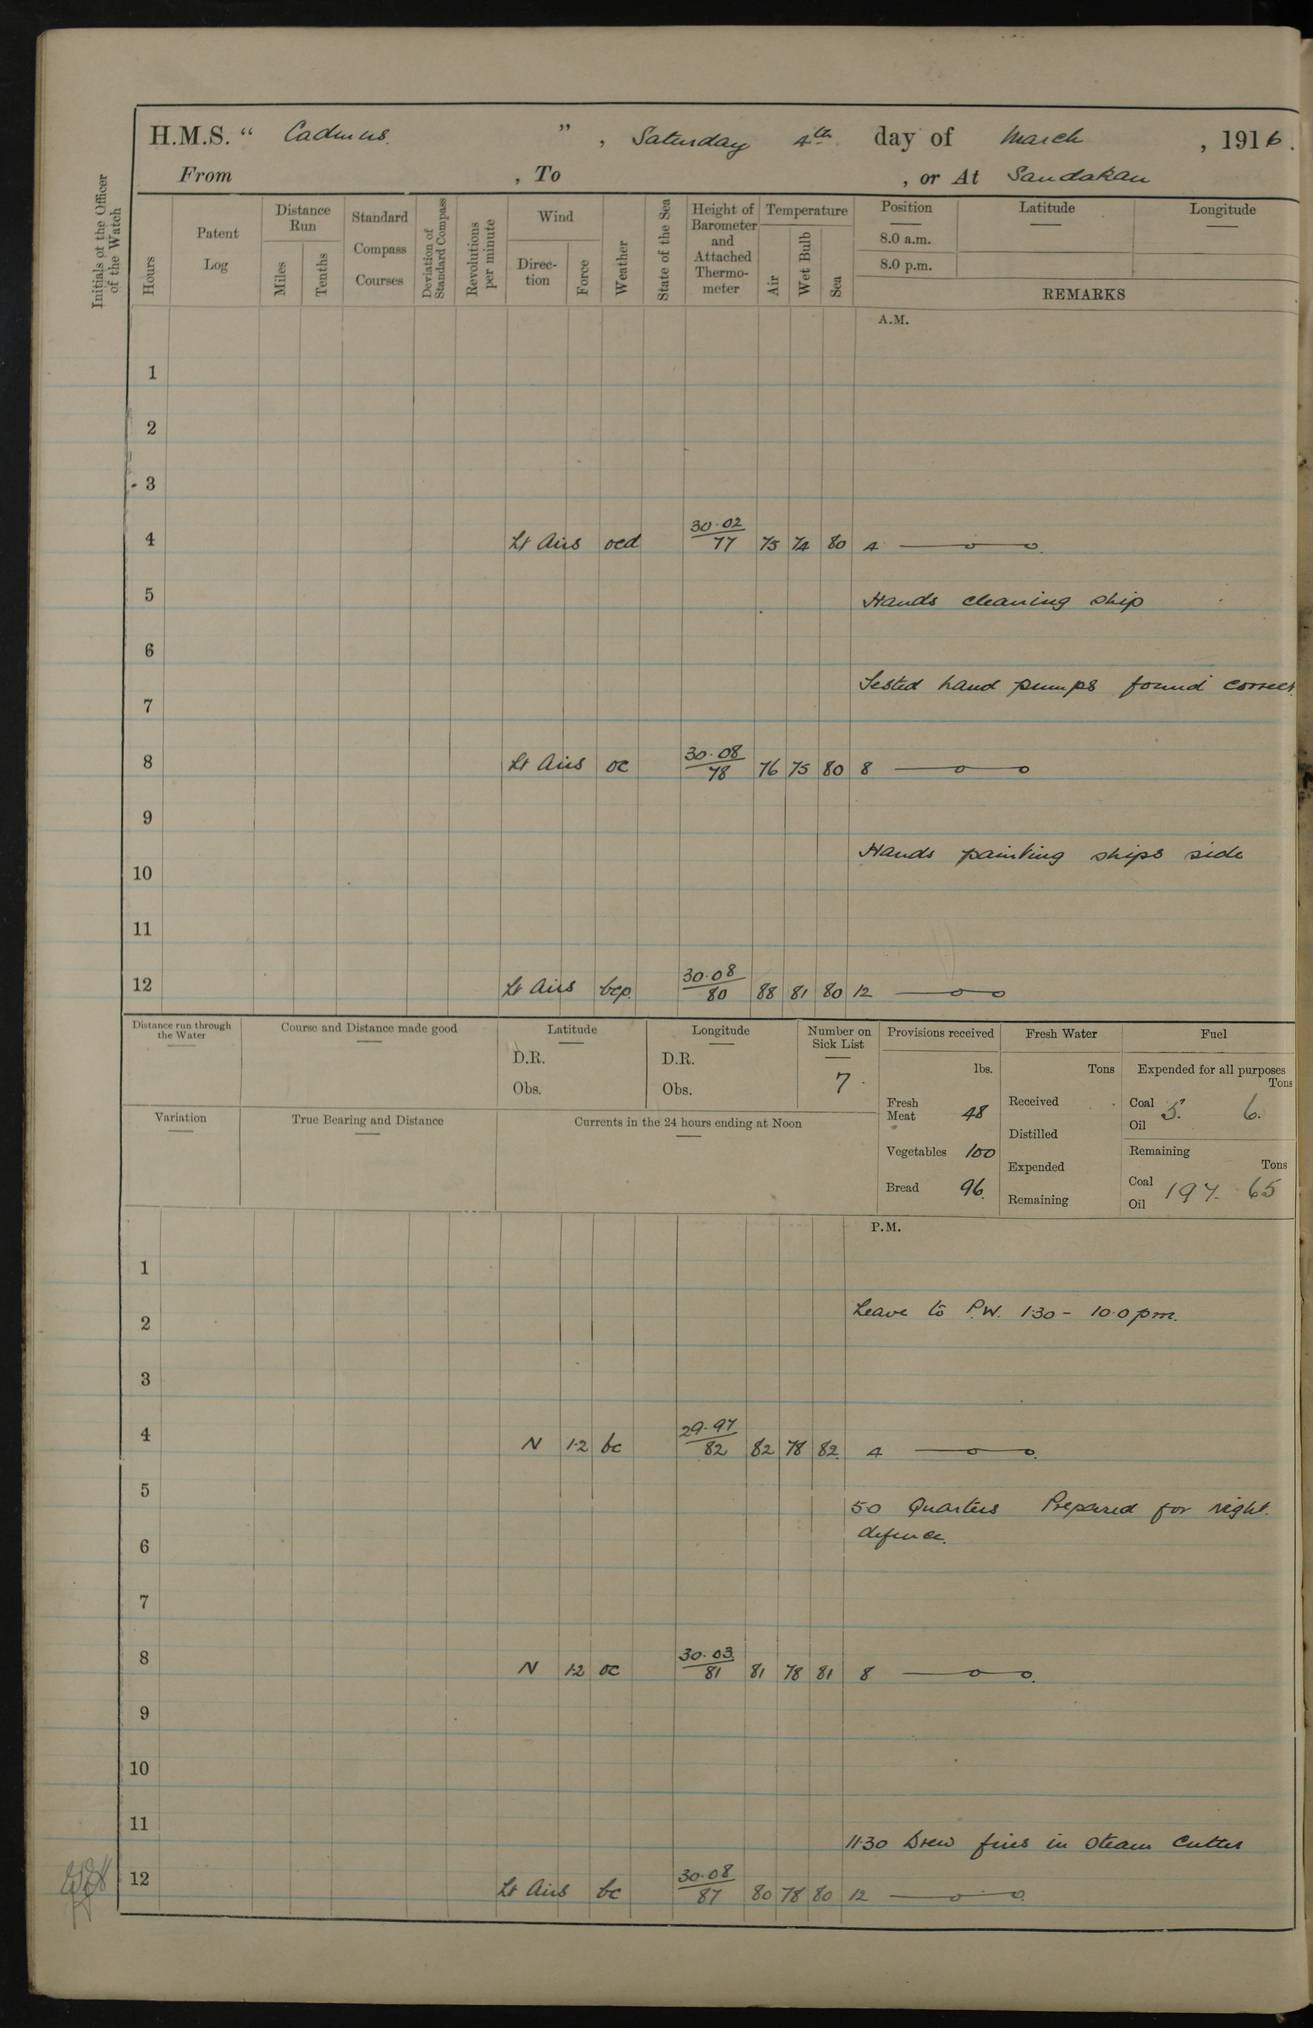 H.M.S. “ Cadmus. ” , Saturday 4th day of March , 1916.
From , To , or At Sandakan
Initials of the Officer of the Watch
Hours
Patent Log
Distance Run
Miles
Tenths
Standard Compass Courses
Deviation of Standard Compass
Revolutions per minute
Wind
Direc-tion
Force
Weather
State of the Sea
Height of Barometer and Attached Thermo-meter
Temperature
Air
Wet Bulb
Sea
Position Latitude Longitude
8.0 a.m.
8.0 p.m.
REMARKS
A.M.
1
2
3
4 Lt Airs ocd 30.02/77 75 74 80 4
5 Hands cleaning ship
6
Tested hand pumps found correct
7
8 Lt Airs oc 30.08/78 76 75 80 8
9
Hands painting ships side
10
11
12 Lt Airs bcp. 30.08/80 88 81 80 12
Distance run through the Water
Course and Distance made good
Latitude
D.R.
Obs.
Longitude
D.R.
Obs.
Number on Sick List
7.
Provisions received
lbs.
Fresh Meat 48
Vegetables 100
Bread 96.
Fresh Water
Tons
Received
Distilled
Expended
Remaining
Fuel
Expended for all purposes
Tons
Coal 5. 6.
Oil
Remaining
Tons
Coal 197. 65
Oil
Variation
True Bearing and Distance
Currents in the 24 hours ending at Noon
P.M.
1
Leave to P.W. 1.30 - 10.0 pm.
2
3
4 N 1.2 bc 29.97/82 82 78 82 4
5
5.0 Quarters Prepared for night
defence.
6
7
8 N 1.2 oc 30.03/81 81 78 81 8
9
10
11
11.30 Drew fires in Steam Cutter
12 Lt Airs bc 30.08/87 80 78 80 12